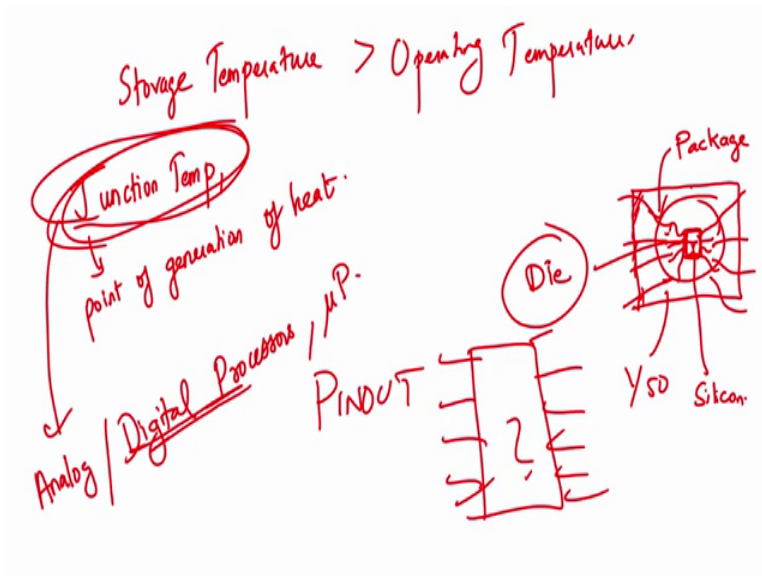 Storage Temperature > Operating Temperature
Junction Temp,
point of generation of heat.
Analog / Digital Processors, μP.
PINOUT
?
Die
Package
1/50
Silicon.